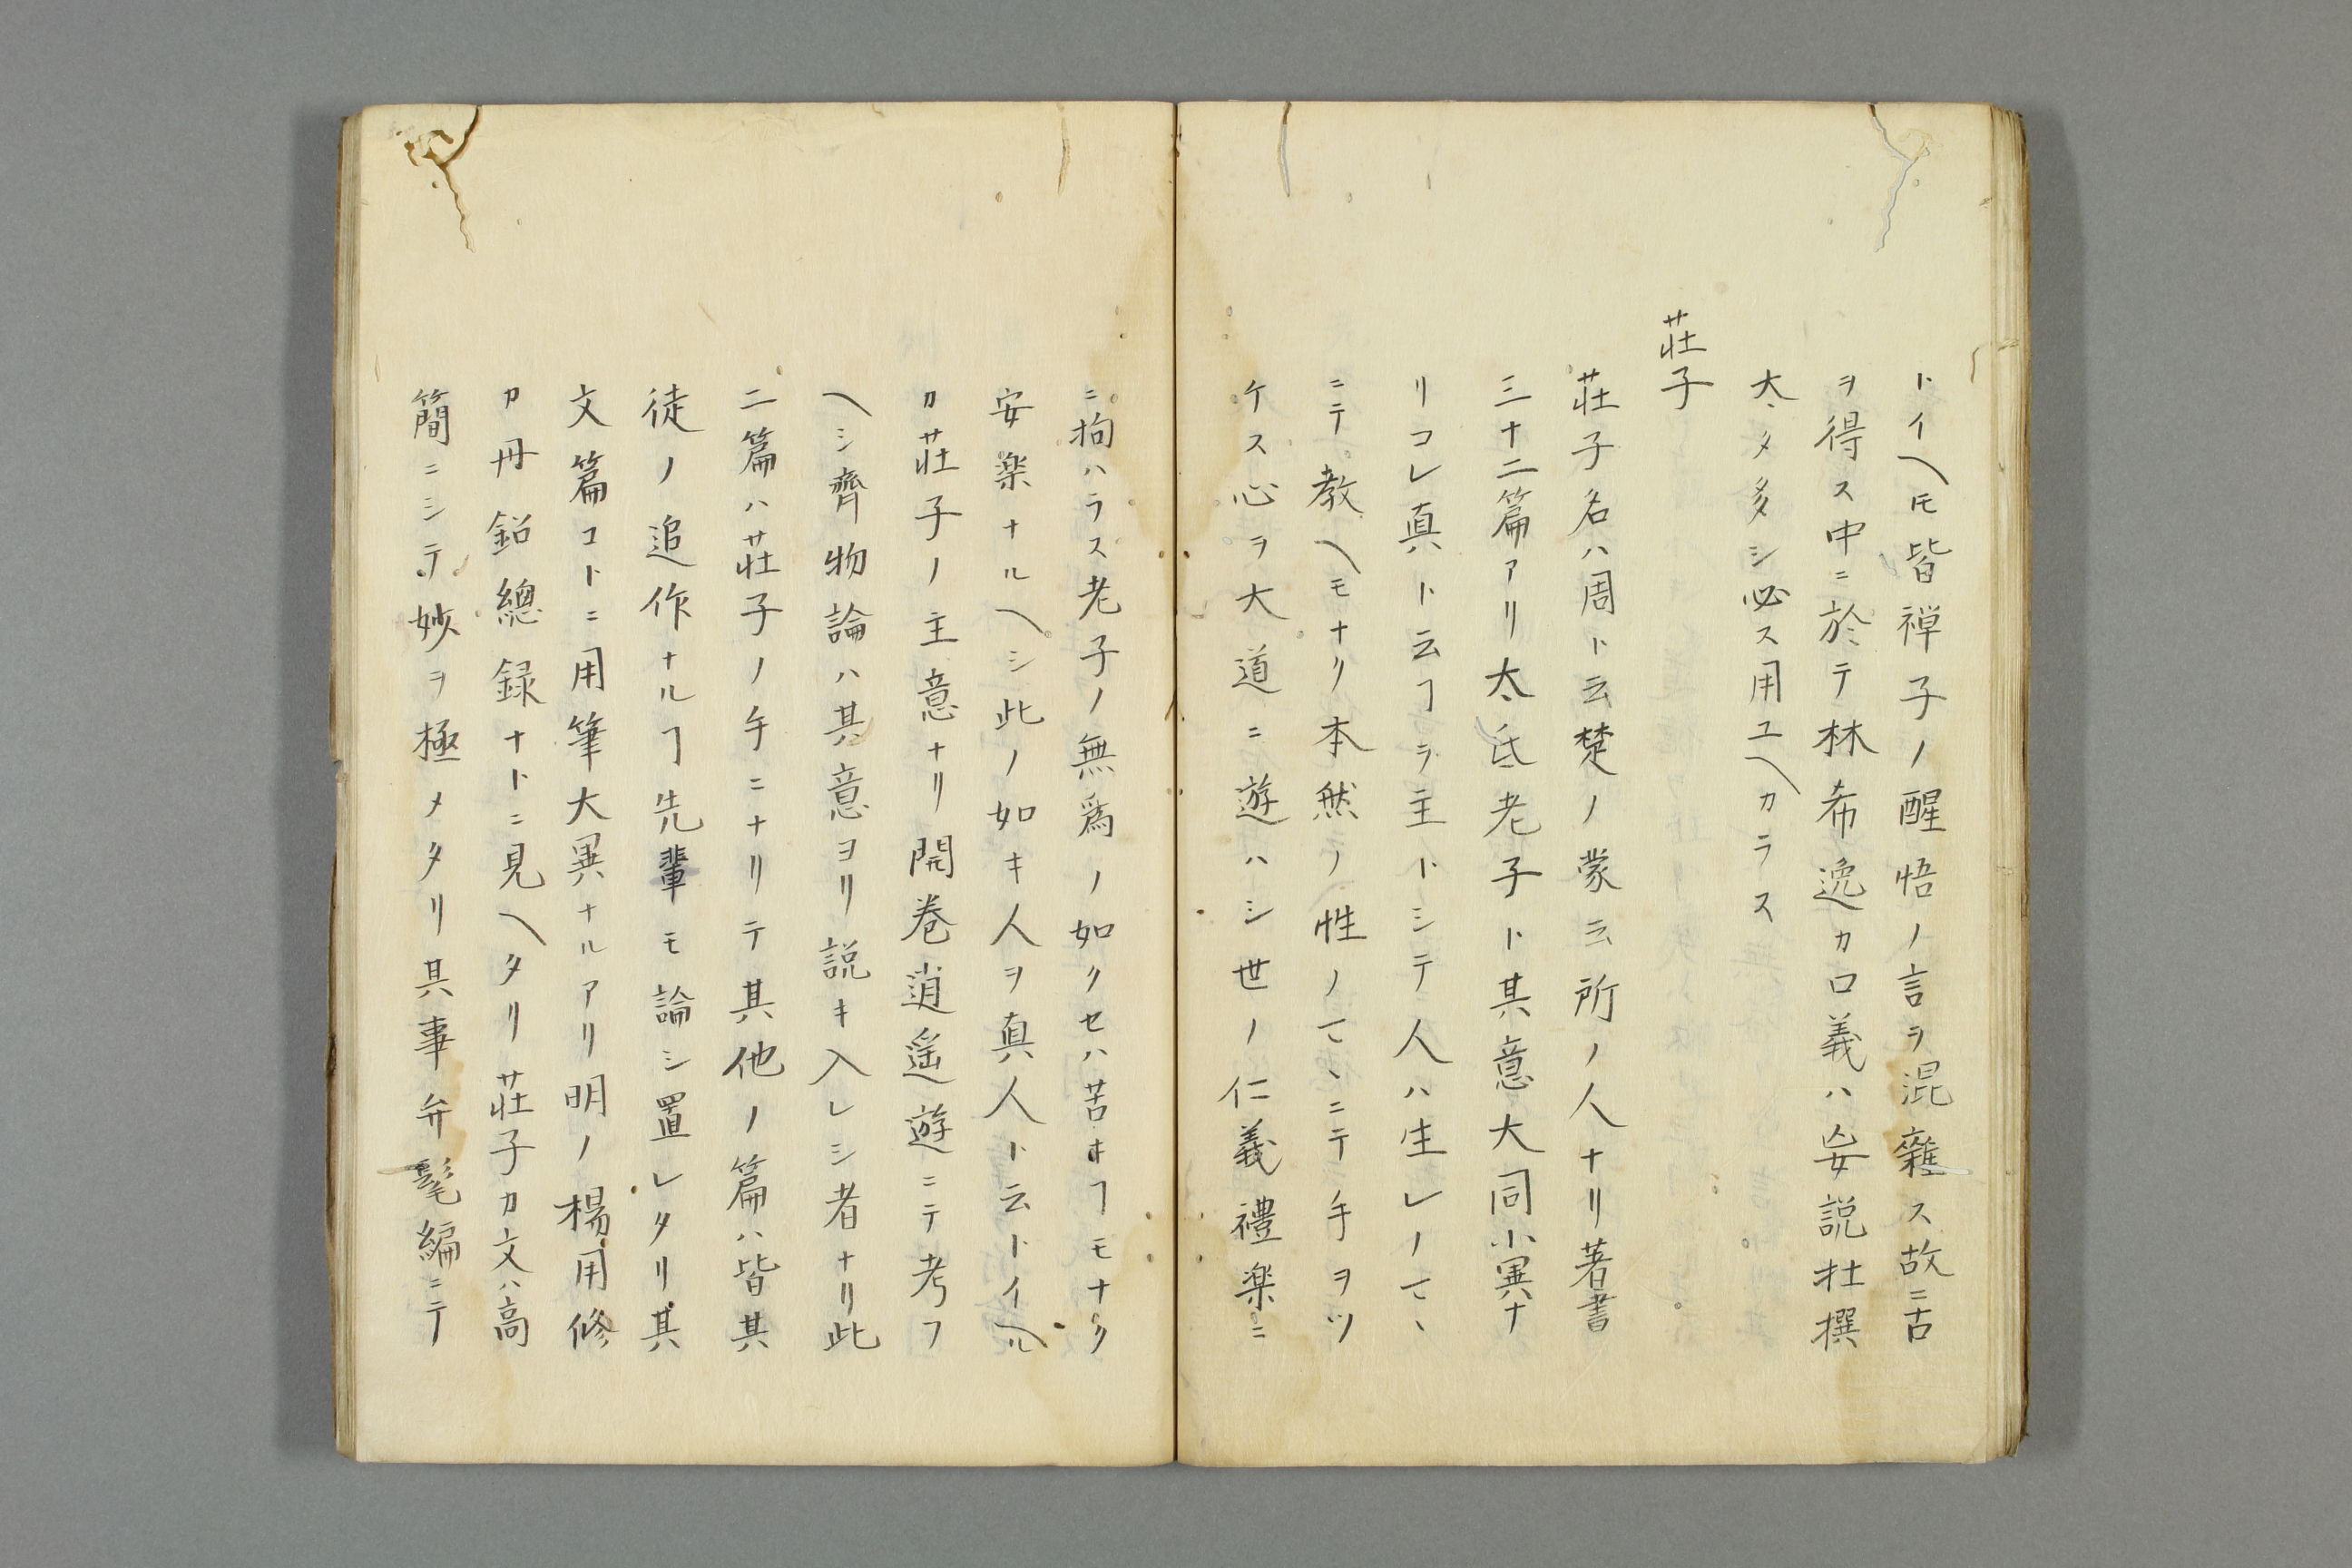 トイヘㇳモ皆禅子ノ醒悟ノ言ヲ混雑ス故ニ古
ヲ得ス中ニ於テ林希逸カ口義ハ妄説杜撰
太タ多シ必ス用ユヘカラス
荘子
荘子名ハ周ト云楚ノ蒙云所ノ人ナリ著書
三十二篇アリ太氐老子ト其意大同小異ナ
リコレ真ト云ヿヲ主トシテ人ハ生レノマヽ
ニテ教ヘモナク本然ノ性ノマヽニテ手ヲツ
ケス心ヲ大道ニ遊ハシ世ノ仁義禮楽ニ
ニ拘ハラス老子ノ無為ノ如クセハ苦キヿモナク
安楽ナルヘシ此ノ如キ人ヲ真人ト云トイヘル
カ荘子ノ主意ナリ開巻逍遥遊ニテ考フ
ヘシ齊物論ハ其意ヨリ説キ入レシ者ナリ此
二篇ハ荘子ノ手ニナリテ其他ノ篇ハ皆其
徒ノ追作ナルヿ先輩モ論シ置レタリ其
文篇コトニ用筆大異ナルアリ明ノ楊用修
カ丹鉛總録ナトニ見ヘタリ荘子カ文ハ高
簡ニシテ妙ヲ極メタリ其事弁髦編ニテ